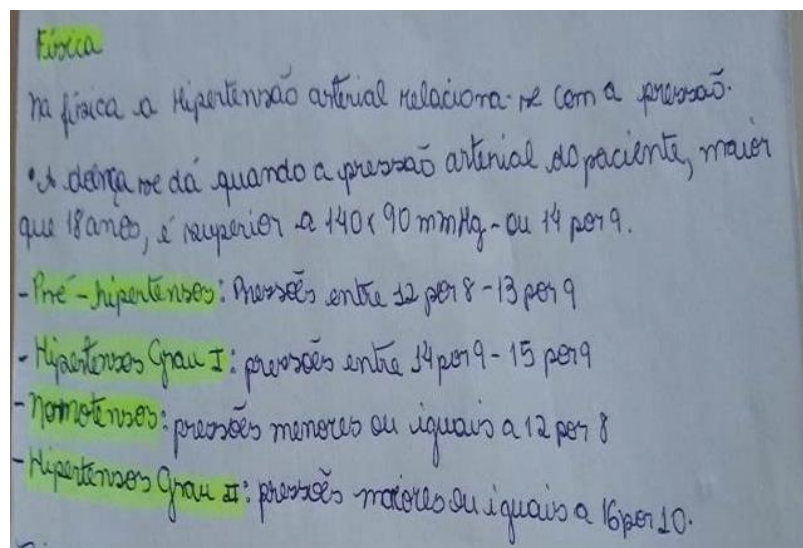 Física
Na física a Hipertensão arterial relaciona-se com a pressão.
• A doença se dá quando a pressão arterial do paciente, maior
que 18 anos, é superior a 140x90 mmHg - ou 14 por 9.
- Pré-hipertensos: Pressões entre 12 por 8 - 13 por 9
- Hipertensos Grau I: pressões entre 14 por 9 - 15 por 9
- Normotensos: pressões menores ou iguais a 12 por 8
- Hipertensos Grau II: pressões maiores ou iguais a 16 por 10.